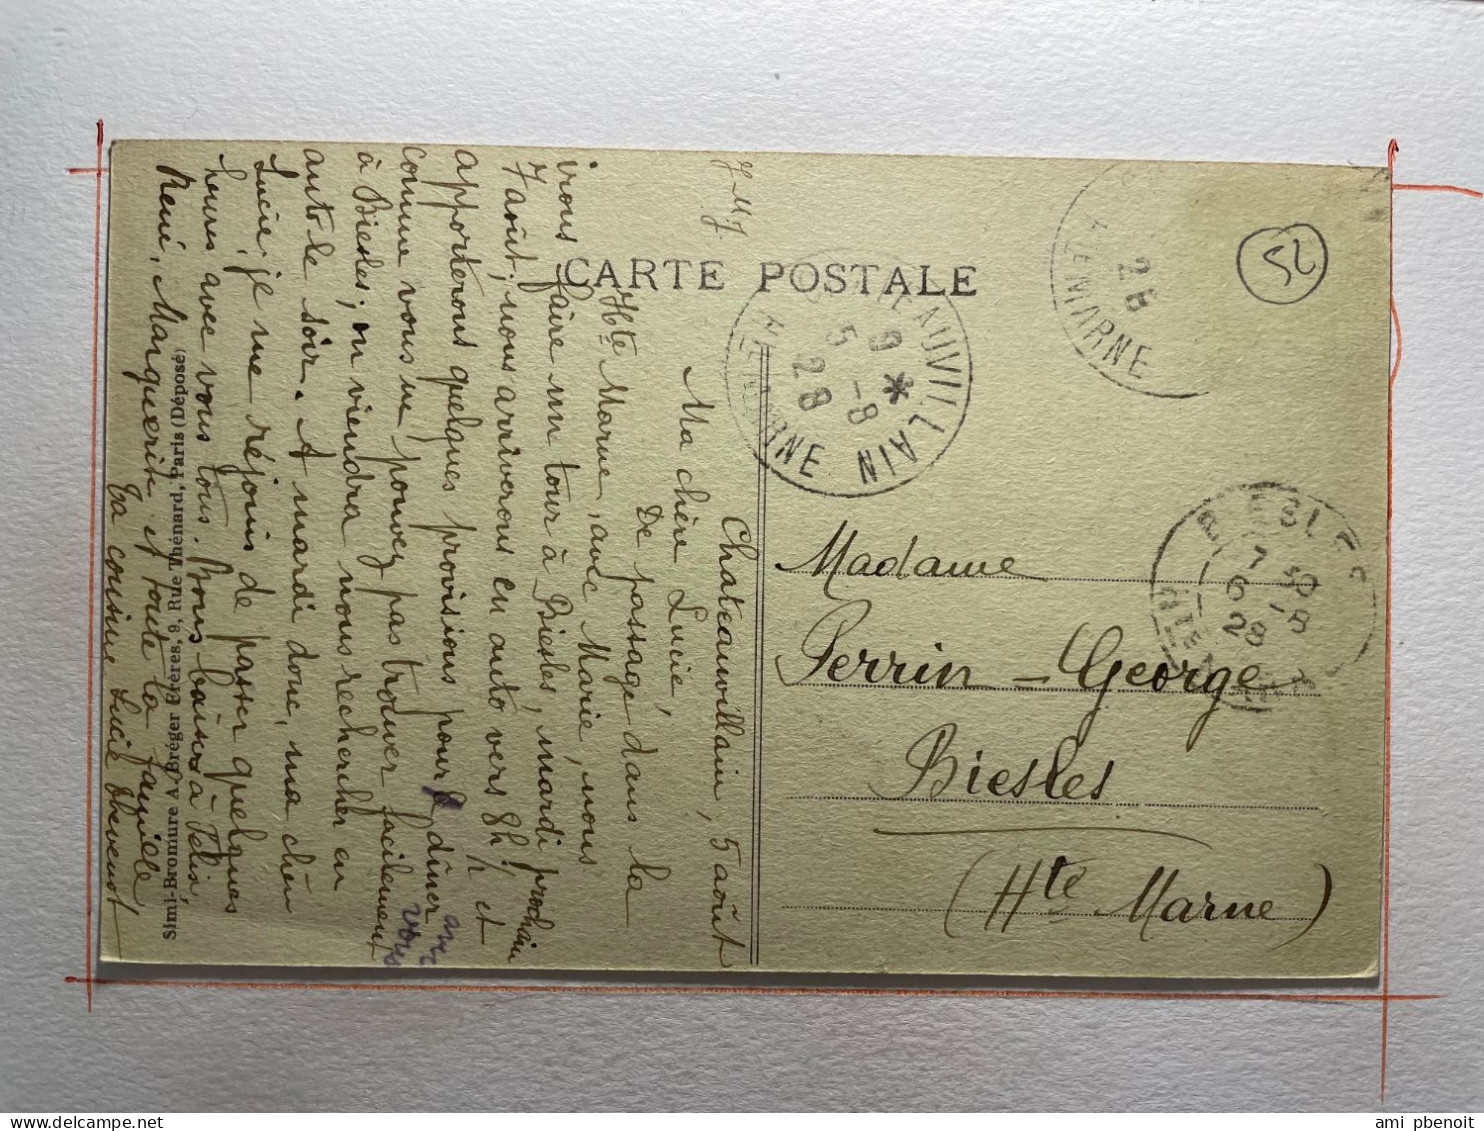 CARTE POSTALE
52
J M J
Chateauvillain, 5 août
Ma chère Lucie,
De passage dans la
Hte Marne, avec Marie, nous
irons faire un tour à Biesles, mardi prochain
7 août, nous arriverons en auto vers 8h 1/2 et
apporterons quelques provisions pour le dîner avec vous
comme vous ne pouvez pas trouver facilement
à Biesles, on viendra nous rechercher en
auto le soir. A mardi donc, ma chère
Lucie, je me réjouis de passer quelques
heures avec vous tous. Bons baisers à
René, Marguerite et toute la famille
Ta cousine Lucie Thevenot
Simi-Bromure A. Bréger Frères, 9, Rue Thénard, Paris (Déposé)
Madame
Perrin - George
Biesles
(Hte Marne)
CHATEAUVILLAIN
9 *
5 -8
28
HTE MARNE
28
HTE MARNE
BIESLES
7 30
6 -8
28
HTE MARNE
ami pbenoit